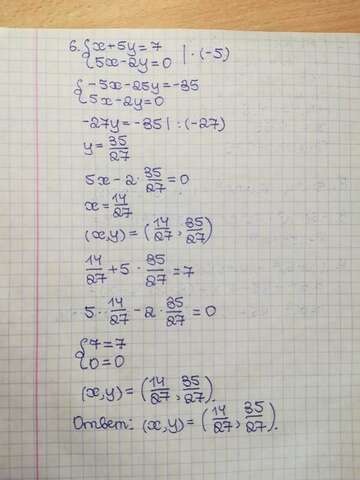 6. {x+5y=7 | ·(-5)
{5x-2y=0
{-5x-25y=-35
{5x-2y=0
-27y=-35 | :(-27)
y=35/27
5x-2·35/27=0
x=14/27
(x,y)=(14/27, 35/27)
14/27+5·35/27=7
5·14/27-2·35/27=0
{7=7
{0=0
(x,y)=(14/27, 35/27).
Ответ: (x,y)=(14/27, 35/27).